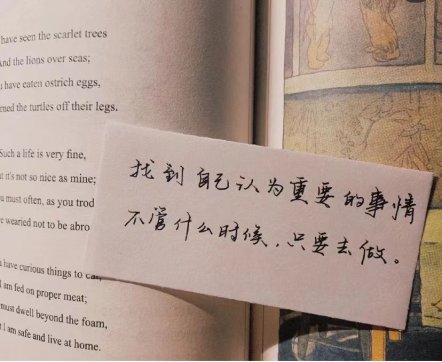 have seen the scarlet trees
And the lions over seas;
have eaten ostrich eggs,
the turtles off their legs.
Such a life is very fine,
it's not so nice as mine;
must often, as you trod
wearied not to be abro
have curious things to eat,
am fed on proper meat;
must dwell beyond the foam,
I am safe and live at home.
找到自己认为重要的事情
不管什么时候,只要去做。